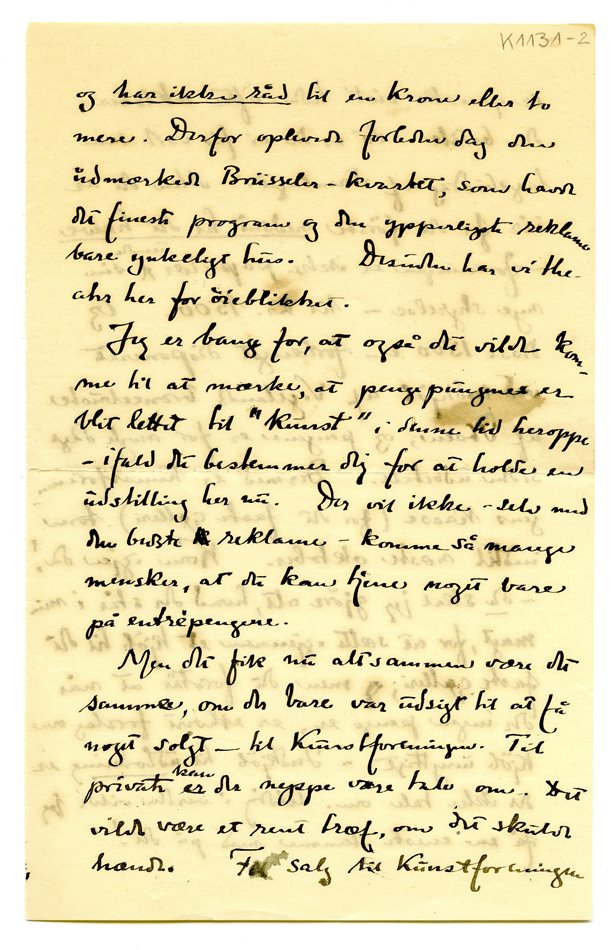 K1131-2
og har ikke råd til en krone eller to
mere. Derfor oplevede forleden dag den
üdmærkede Brüsseler-kvartet, som havde
det fineste program og den ypperligste reklame
bare ynkeligt hus. Desuden har vi the-
ater her for öieblikket.
Jeg er bange for, at også du vilde kom-
me til at mærke, at pengepüngene er
blit lettet til "Künst" i denne tid heroppe
- ifald du bestemmer dig for at holde en
üdstilling her nü. Der vil ikke - selv med
den bedste reklame - komme så mange
mensker, at du kan tjene noget bare
på entrépengene.
Men det fik nü altsammen være det
samme, om der bare var üdsigt til at få
noget solgt - til Künstforeningen. Til
private kan der neppe være tale om. Det
vilde være et rent træf, om det skülde
hænde. For salg til Künstforeningen